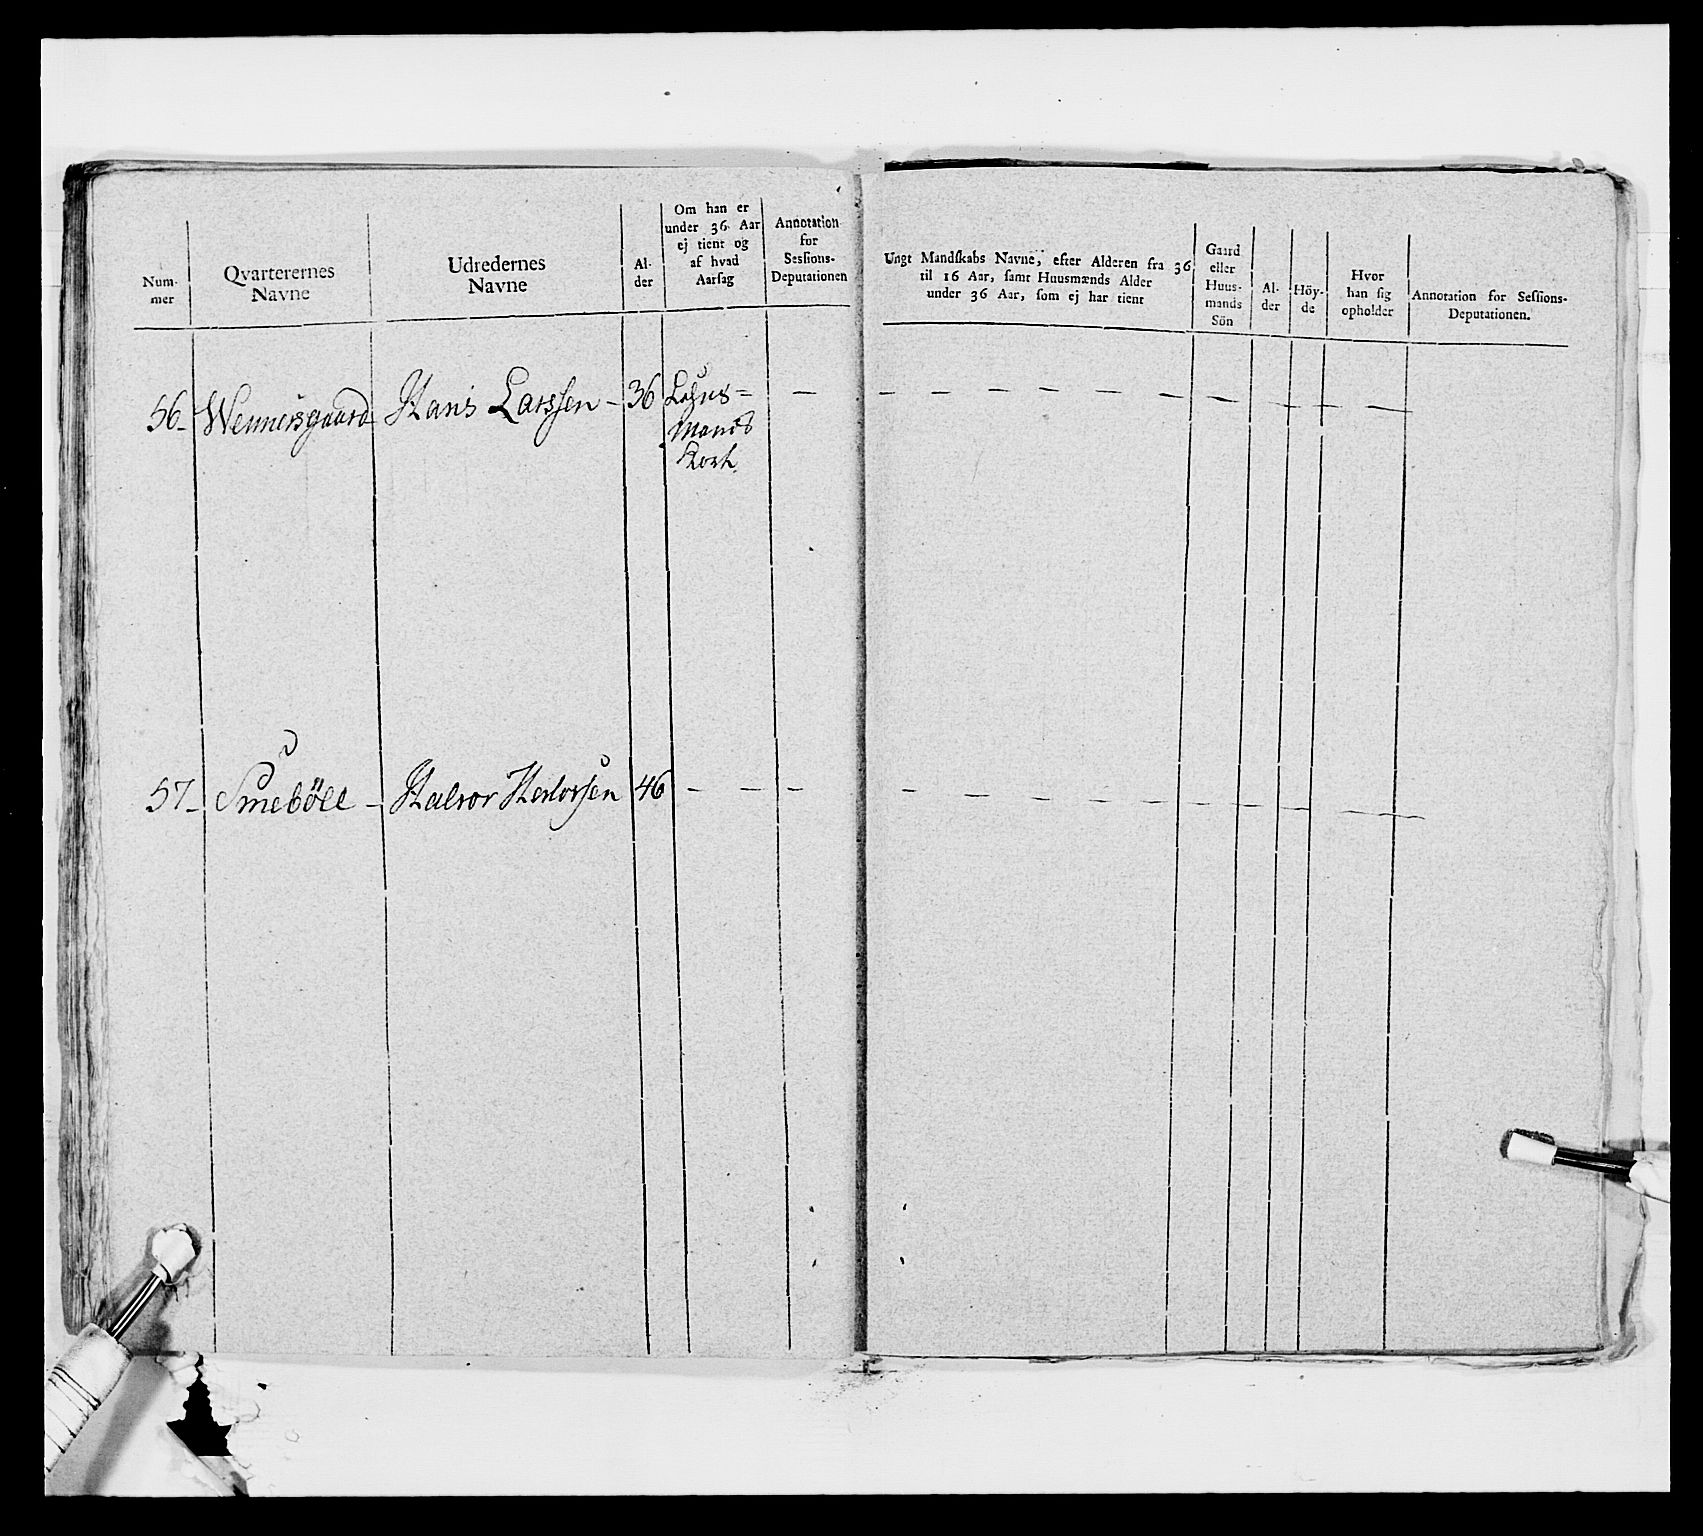 Num-
mer
Qvarterernes
Navne
Udredernes
Navne
Al-
der
Om han er
under 36 Aar
ej tient og
af hvad
Aarsag
Annotation
for
Sessions-
Deputationen
Ungt Mandskabs Navne, efter Alderen fra 36
til 16 Aar, samt Huusmænds Alder
under 36 Aar, som ej har tient
Gaard
eller
Huus-
mands
Sön
Al-
der
Höy-
de
Hvor
han sig
opholder
Annotation for Sessions-
Deputationen.
56 - Wennersgaard Hans Larssen - 36 - - - - - - - - - - - -
Mands
57 - Smeböll - Halvor Halvorsen 46 - - - - - - - - - - - - -